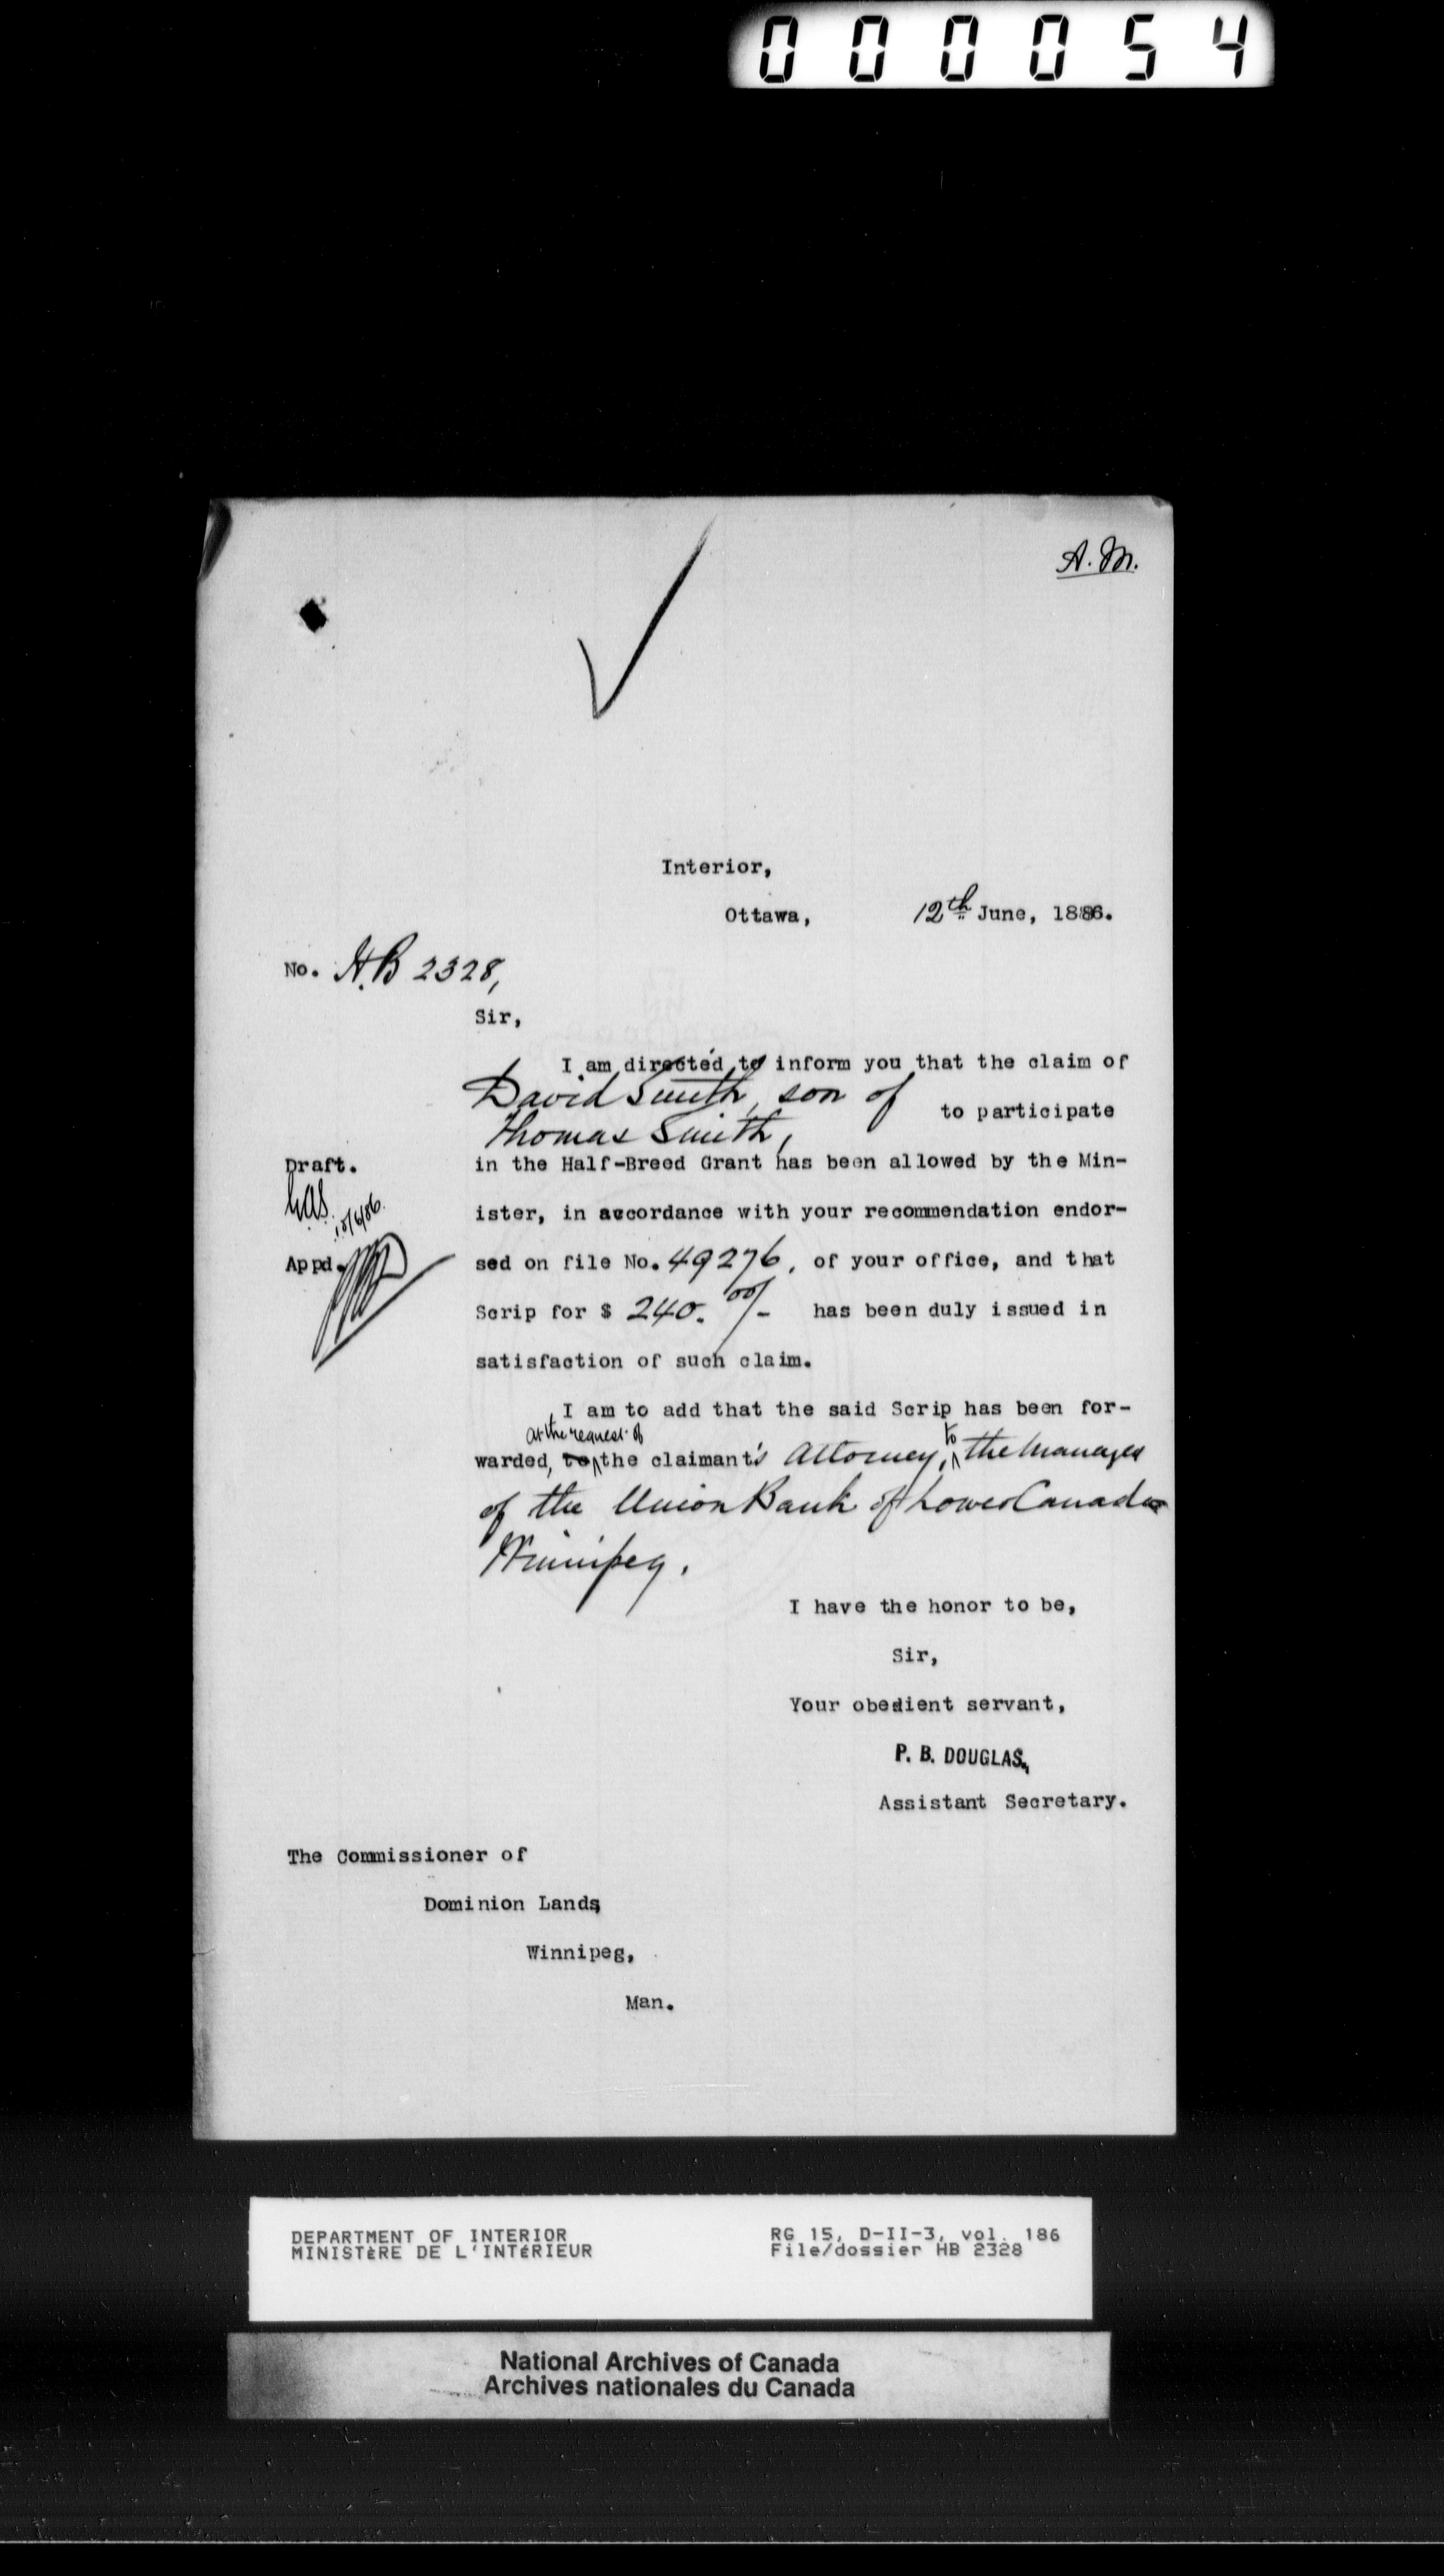 000054
A. M.
Interior,
Ottawa, 12th June, 1886.
No. H.B 2328,
Sir,
I am directed to inform you that the claim of
David Smith, son of
Thomas Smith, to participate
Draft. in the Half-Breed Grant has been allowed by the Min-
ister, in accordance with your recommendation endor-
Appd. sed on file No. 49276, of your office, and that
Scrip for $ 240. 00/- has been duly issued in
satisfaction of such claim.
I am to add that the said Scrip has been for-
at the request of to
warded, to the claimant's Attorney, the Manager
of the Union Bank of Lower Canada
Winnipeg.
I have the honor to be,
Sir,
Your obedient servant,
P. B. DOUGLAS,
Assistant Secretary.
The Commissioner of
Dominion Lands
Winnipeg,
Man.
DEPARTMENT OF INTERIOR RG 15, D-II-3, vol. 186
MINISTÈRE DE L'INTÉRIEUR File/dossier HB 2328
National Archives of Canada
Archives nationales du Canada